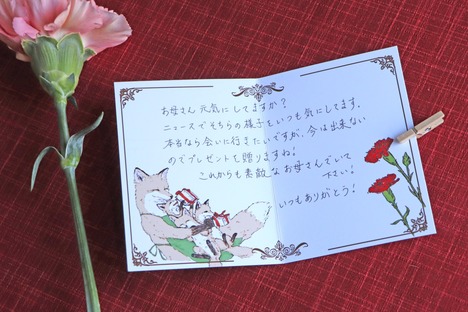 お母さん 元気にしてますか?
ニュースでそちらの様子をいつも気にしてます。
本当なら会いに行きたいですが、今は出来ない
のでプレゼントを贈りますね!
これからも素敵なお母さんでいて
下さい!
いつもありがとう!